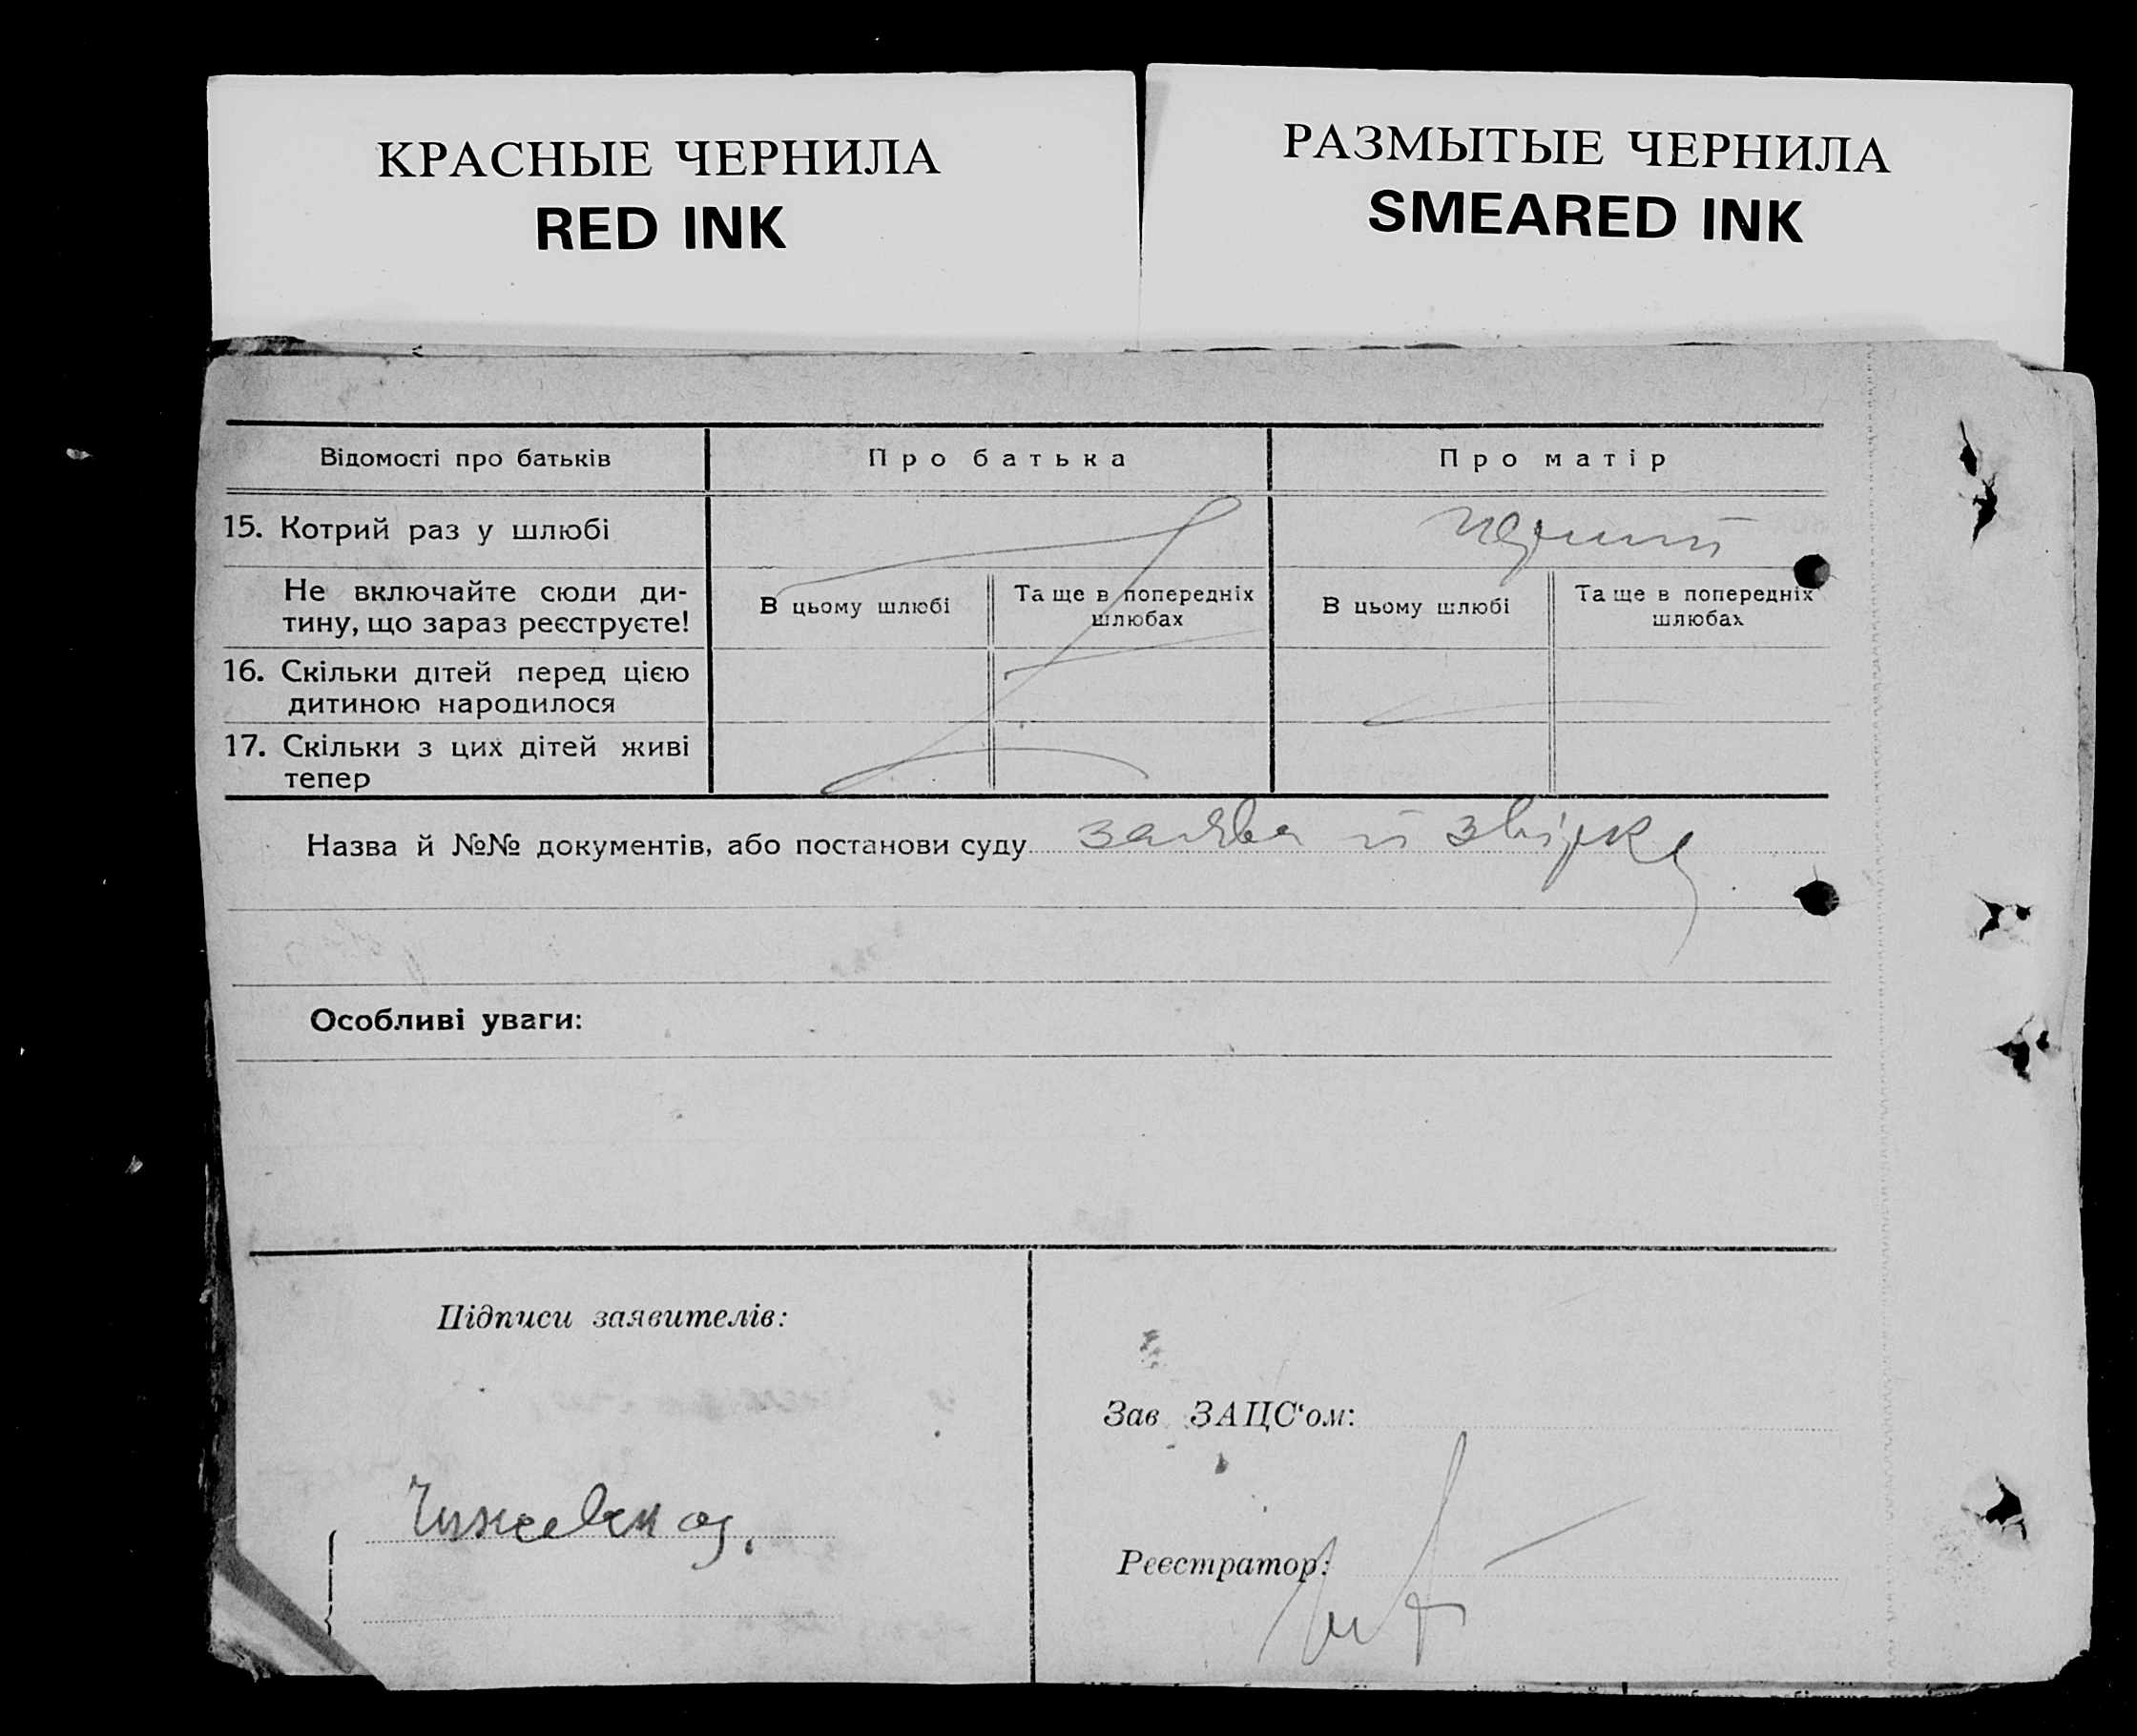 КРАСНЫЕ ЧЕРНИЛА
RED INK
РАЗМЫТЫЕ ЧЕРНИЛА
SMEARED INK
Відомості про батьків
Про батька
Про матір
15. Котрий раз у шлюбі
перший
Не включайте сюди ди-
тину, що зараз реєструєте!
В цьому шлюбі
Та ще в попередніх
шлюбах
В цьому шлюбі
Та ще в попередніх
шлюбах
16. Скільки дітей перед цією
дитиною народилося
17. Скільки з цих дітей живі
тепер
Назва й №№ документів, або постанови суду заява й
Особливі уваги:
Підписи заявителів:
Зав ЗАЦС‘ом:
Реєстратор: